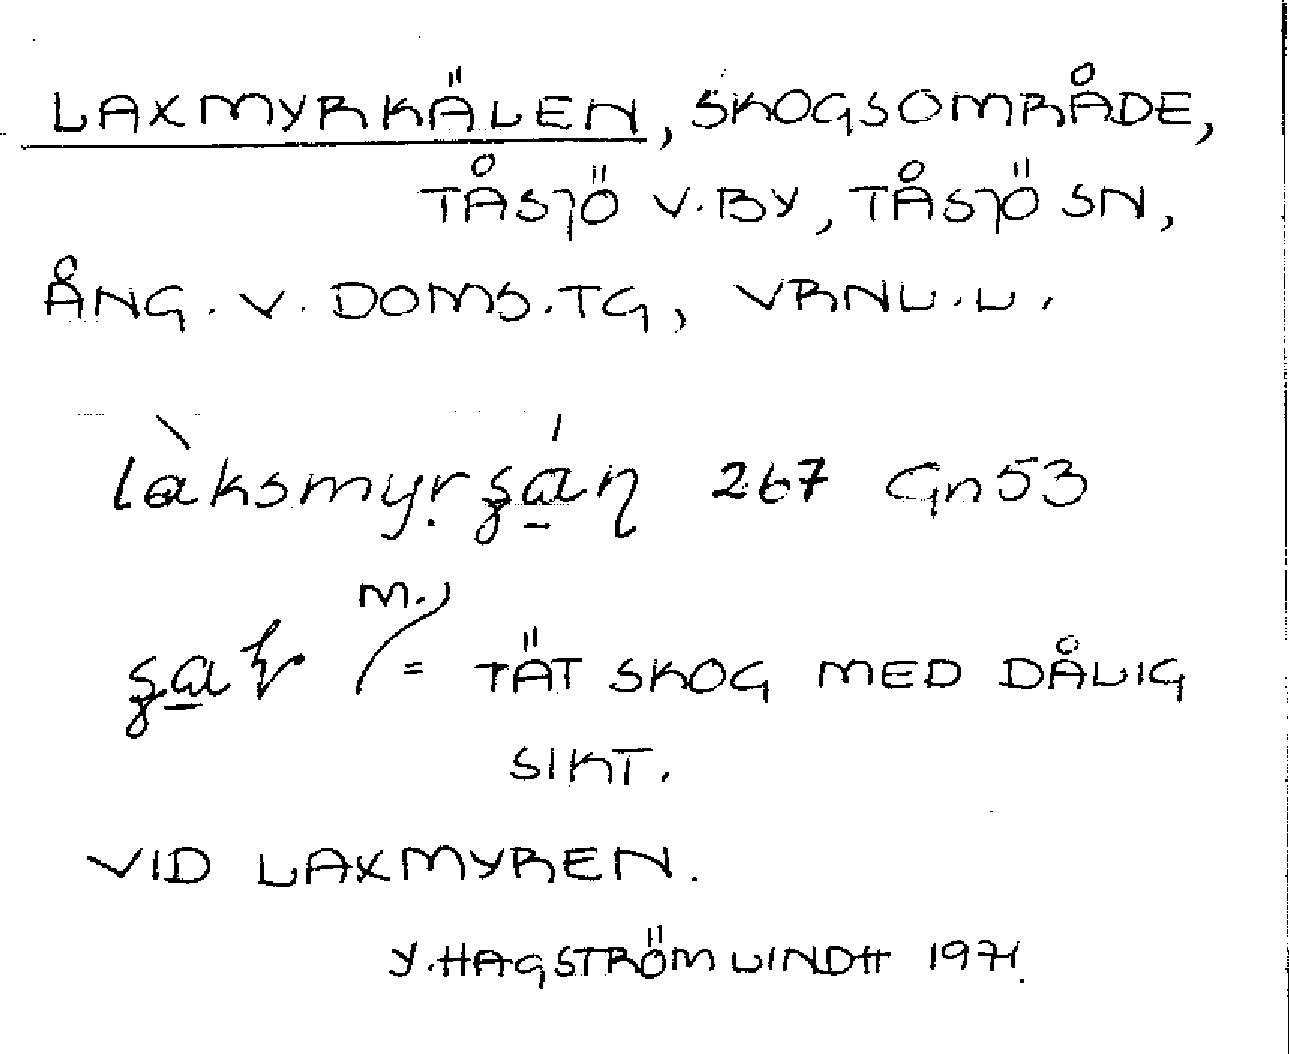 LAXMYRKÄLEN, SKOGSOMRÅDE,
TÅSJÖ V.BY, TÅSJÖ SN,
ÅNG. V. DOMS.TG, VRNL.L.
267 Gn53
m.
= TÄT SKOG MED DÅLIG
SIKT.
VID LAXMYREN.
Y.HAGSTRÖM LINDH 1971.